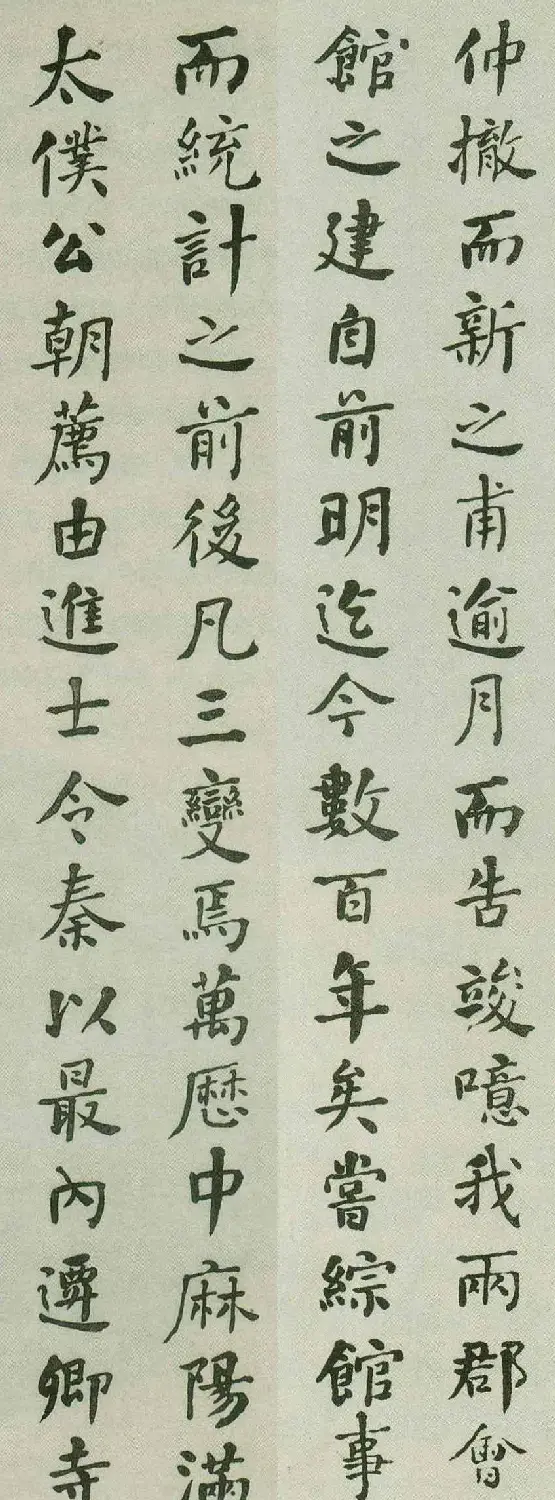 仲撤而新之甫逾月而告竣噫我兩郡會
館之建自前明迄今數百年矣嘗綜館事
而統計之前後凡三變焉萬曆中麻陽滿
太僕公朝薦由進士令秦以最內遷卿寺